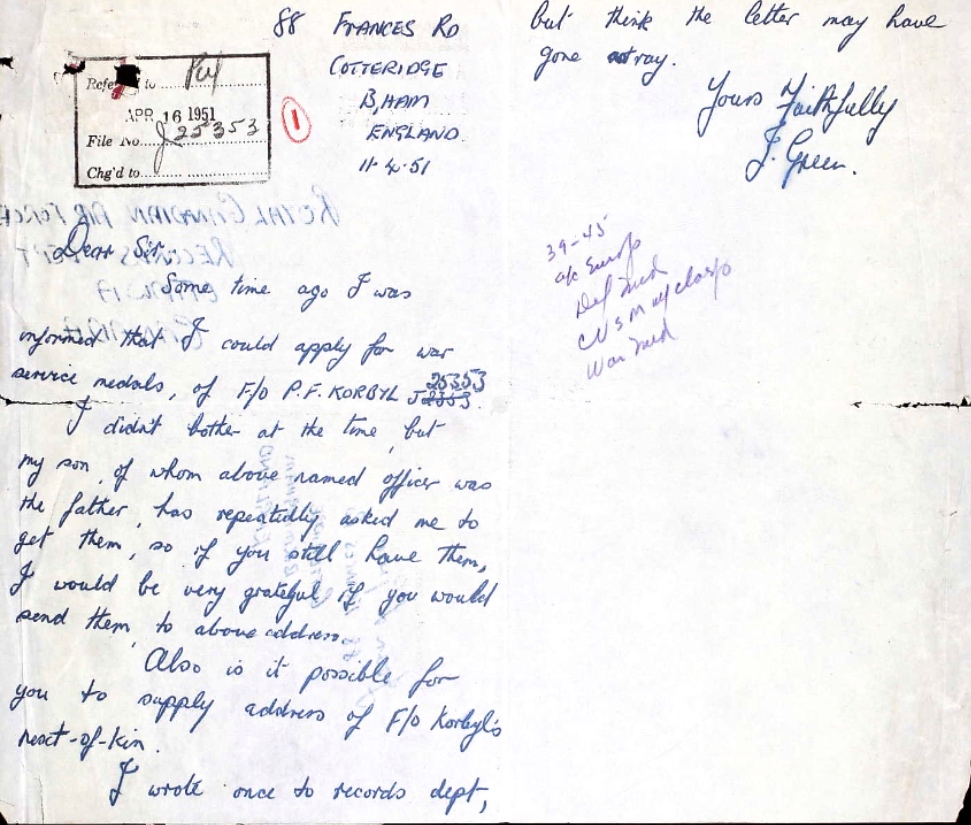 88 FRANCES RD
COTTERIDGE
B,HAM
ENGLAND
11.4.51
Referred to
APR 16 1951
File No. J25353
Chg'd to
1
ROYAL CANADIAN AIR FORCE
RECORDS DEPT
OTTAWA
Dear Sir,
Some time ago I was
informed that I could apply for war
service medals, of F/o P.F. KORBYL J2353 25353
I didn't bother at the time, but
my son, of whom above named officer was
the father, has repeatedly asked me to
get them, so if you still have them,
I would be very grateful if you would
send them, to above address.
Also is it possible for
you to supply address of F/o Korbyl's
next-of-kin.
I wrote once to records dept,
but think the letter may have
gone astray.
Yours Faithfully
J. Green.
39-45
a/c Europ
Def med
CVSM w clasp
War med